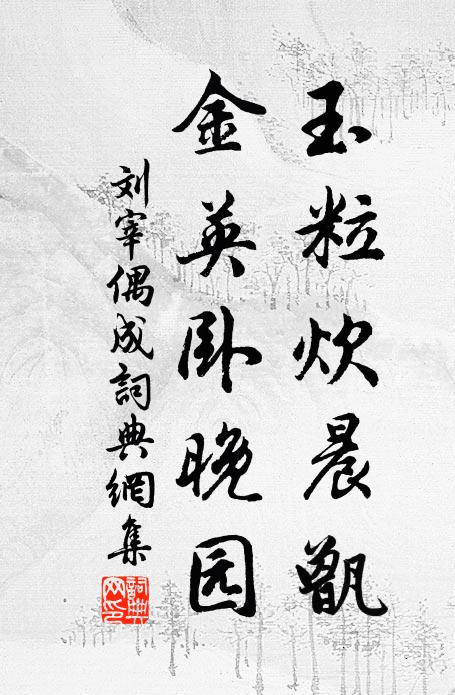 玉粒炊晨甑
金英卧晚园
刘宰偶成詞典網集
詞典網印